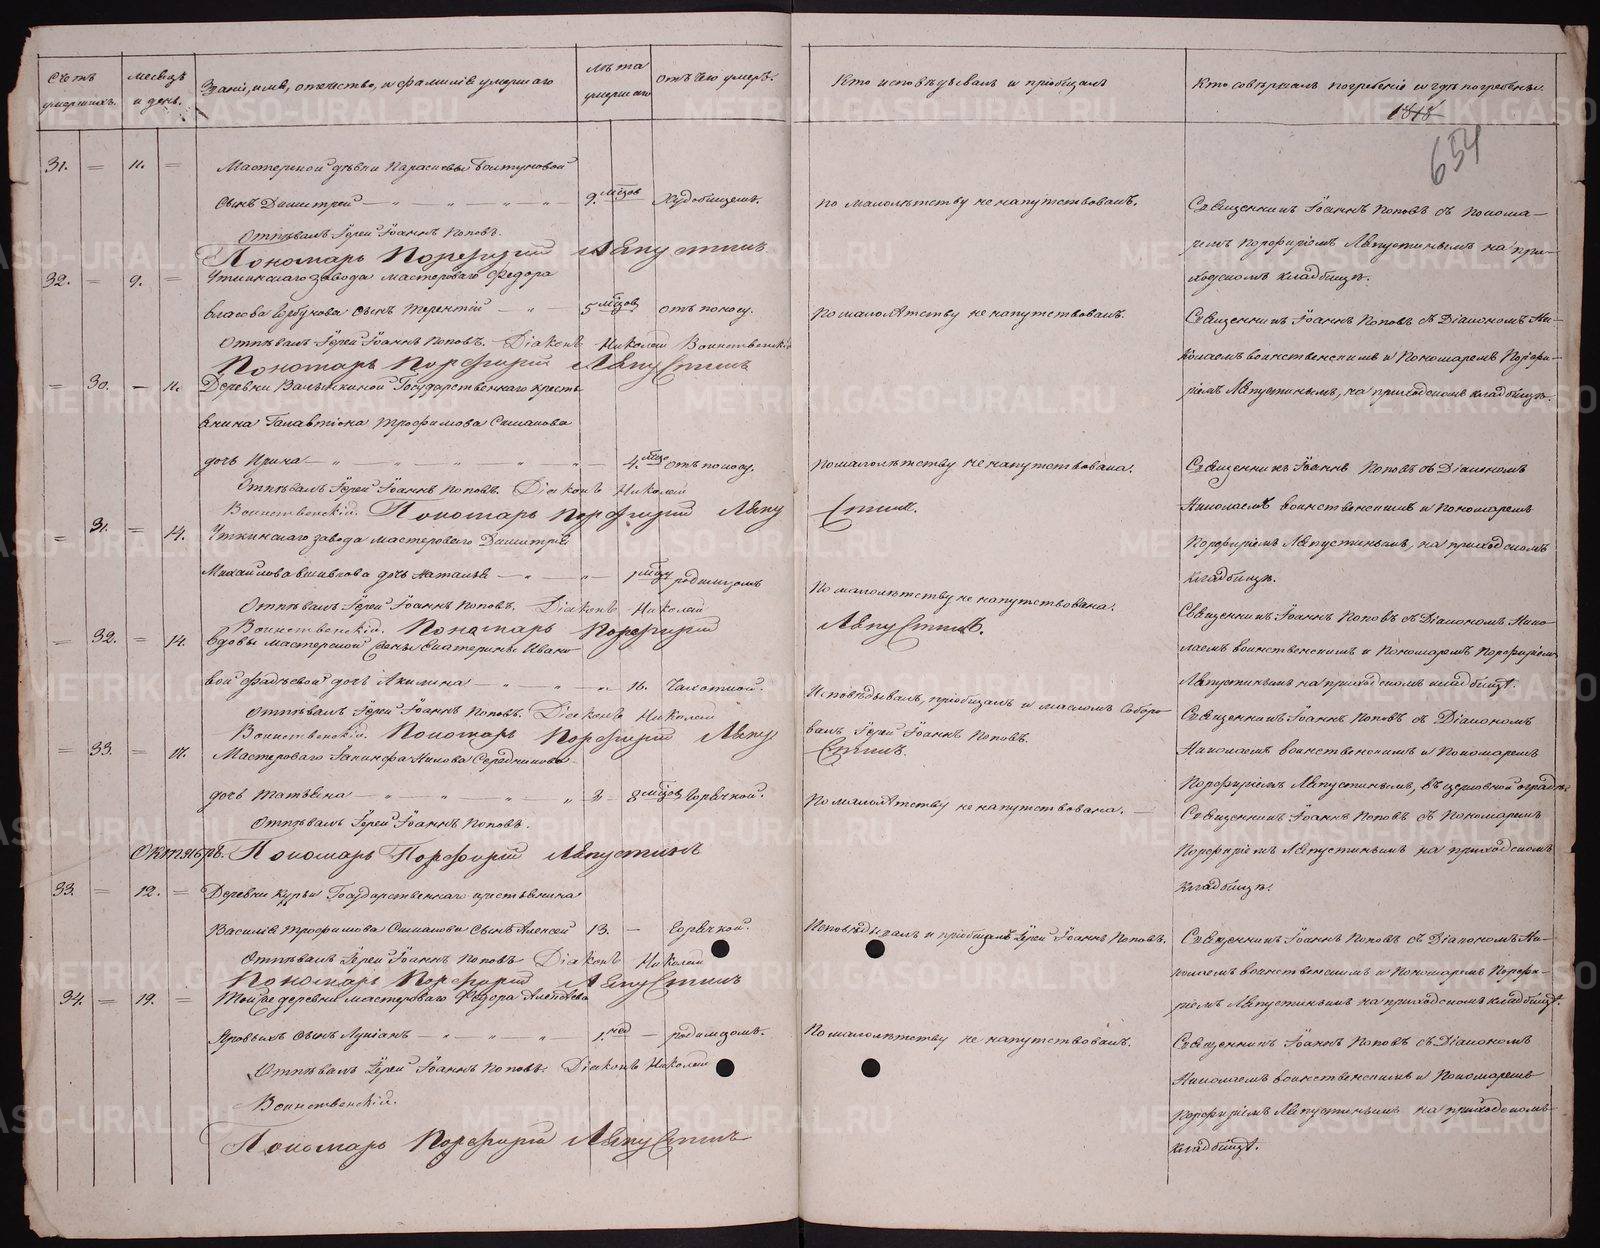 Счетъ умершихъ.
месяцъ и день.
Званіе, имя, отчество, и фамилія умершаго
Лѣта умершаго
отъ чего умеръ.
Кто исповѣдывалъ и пріобщалъ
Кто совершалъ погребеніе и гдѣ погребены.
1818
654
31. = 11. = Мастерской дѣвки Параскевы
сынъ Димитрей — " — " — " — 9. мѣсцов
по малолѣтству не напутствованъ.
Священникъ Іоаннъ Поповъ съ понома-
ремъ Порфиріемъ Ляпустинымъ на при-
ходскомъ кладбищѣ.
Отпѣвалъ Іерей Іоаннъ Поповъ.
Пономарь Порфирій Ляпустинъ
32. = 9. = Уткинскаго завода мастероваго Федора
сынъ Терентій — " — 5 мѣсцов отъ поносу.
по малолѣтству не напутствованъ.
Священникъ Іоаннъ Поповъ съ Діакономъ Ни-
колаемъ Воинственскимъ и Пономаремъ Порфи-
ріемъ Ляпустинымъ, на приходскомъ кладбищѣ.
Отпѣвалъ Іерей Іоаннъ Поповъ. Діаконъ Николай Воинственскій
Пономарь Порфирій Ляпустинъ
= 30. — 11. Деревни Государственнаго кресть-
янина Галактіона Трофимова
дочь Ирина — " — " — " — " — 4. мсце отъ поносу.
по малолѣтству не напутствована.
Священникъ Іоаннъ Поповъ съ Діакономъ
Николаемъ Воинственскимъ и Пономаремъ
Порфиріемъ Ляпустинымъ, на приходскомъ
кладбищѣ.
Отпѣвалъ Іерей Іоаннъ Поповъ. Діаконъ Николай
Воинственскій. Пономарь Порфирій Ляпу стинъ.
= 31. = 14. Уткинскаго завода мастероваго Димитрія
Михайлова дочь Наталья — " — " — 1 мсцу родимцомъ
по малолѣтству не напутствована.
Священникъ Іоаннъ Поповъ съ Діакономъ Нико-
лаемъ Воинственскимъ и Пономаремъ Порфиріемъ
Ляпустинымъ на приходскомъ кладбищѣ.
Отпѣвалъ Іерей Іоаннъ Поповъ. Діаконъ Николай
Воинственскій. Пономарь Порфирій Ляпустинъ.
= 32. = 14. Вдовы мастерской жены Екатерины Ивано-
вой дочь Акилина — " — " — 16. Чахоткой.
Исповѣдывалъ, пріобщалъ и масломъ Соборо-
валъ Іерей Іоаннъ Поповъ.
Священникъ Іоаннъ Поповъ съ Діакономъ
Николаемъ Воинственскимъ и Пономаремъ
Порфиріемъ Ляпустинымъ, въ церковной оградѣ.
Отпѣвалъ Іерей Іоаннъ Поповъ. Діаконъ Николай
Воинственскій. Пономарь Порфирій Ляпу стинъ.
= 33. — Мастероваго
дочь Татьяна — " — " — " — " 8 мѣсцов Горячкой.
по малолѣтству не напутствована. —
Священникъ Іоаннъ Поповъ съ Пономаремъ
Порфиріемъ Ляпустинымъ на приходскомъ
кладбищѣ.
Отпѣвалъ Іерей Іоаннъ Поповъ.
Пономарь Порфирій Ляпустинъ
Октябрь.
33. = 12. = Деревни Курьи Государственнаго крестьянина
Василія Трофимова сынъ Алексей 13. — Горячкой.
Исповѣдывалъ и пріобщалъ Іерей Іоаннъ Поповъ.
Священникъ Іоаннъ Поповъ съ Діакономъ Ни-
колаемъ Воинственскимъ и Пономаремъ Порфи-
ріемъ Ляпустинымъ на приходскомъ кладбищѣ.
Отпѣвалъ Іерей Іоаннъ Поповъ Діаконъ Николай
Пономарь Порфирій Ляпустинъ
34. = 19. = Той же деревни мастероваго Федора
сынъ Лукіанъ — " — " — " — 1. нед — родимцомъ.
По малолѣтству не напутствованъ.
Священникъ Іоаннъ Поповъ съ Діакономъ
Николаемъ Воинственскимъ и Пономаремъ
Порфиріемъ Ляпустинымъ на приходскомъ
кладбищѣ.
Отпѣвалъ Іерей Іоаннъ Поповъ. Діаконъ Николай
Воинственскій.
Пономарь Порфирій Ляпустинъ
METRIKI.GASO-URAL.RU